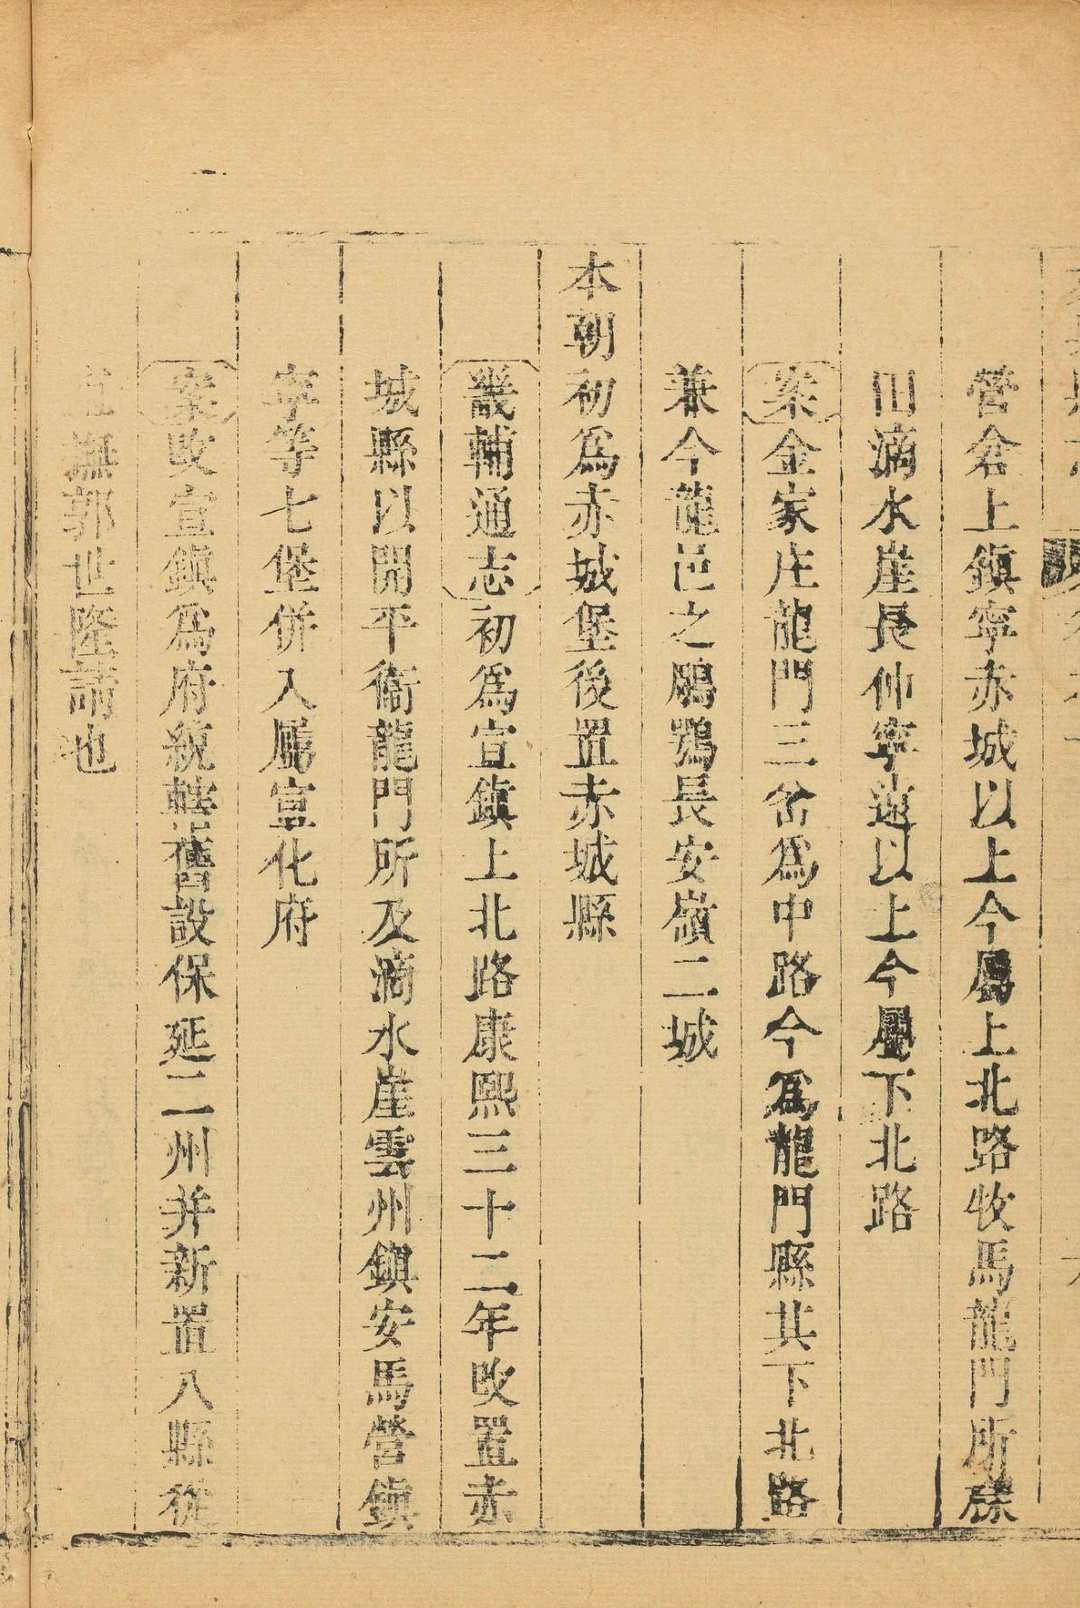 營倉上鎮寧赤城以上今屬上北路牧馬龍門所樣
田滴水崖長伸寧遠以上今屬下北路
案金家庄龍門三岔爲中路今爲龍門縣其下北路
兼今龍邑之鵰鶚長安嶺二城
本朝初爲赤城堡後置赤城縣
畿輔通志初爲宣鎮上北路康熙三十二年改置赤
城縣以開平衞龍門所及滴水崖雲州鎮安馬營鎮
寧等七堡併入屬宣化府
案改宣鎮爲府統轄舊設保延二州并新置八縣從
撫郭世隆請也